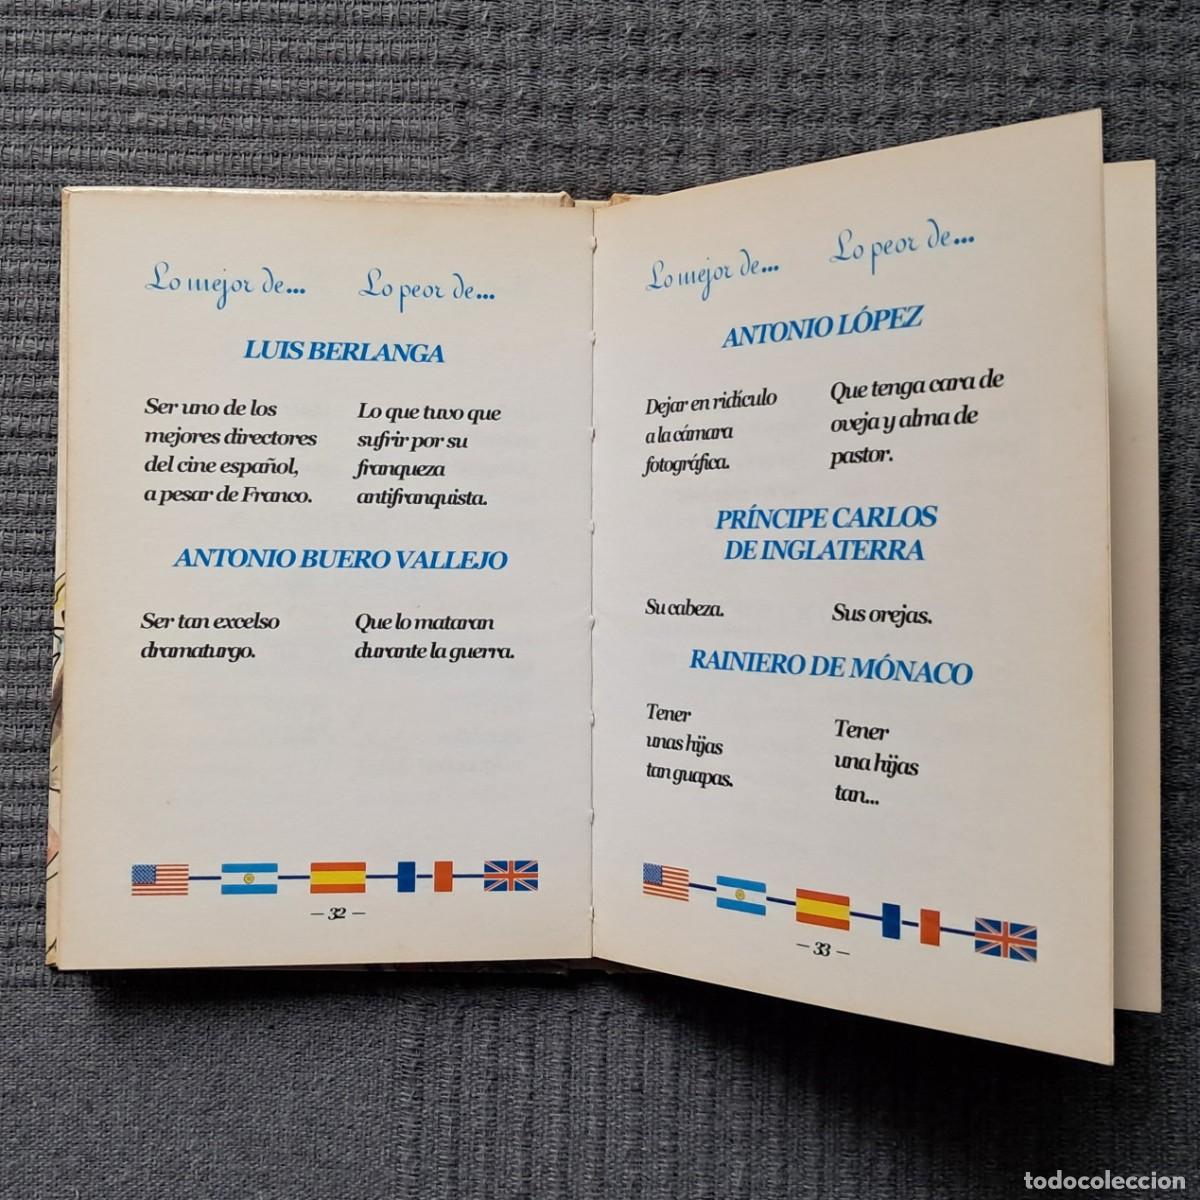 Lo mejor de... Lo peor de...
LUIS BERLANGA
Ser uno de los
mejores directores
del cine español,
a pesar de Franco.
Lo que tuvo que
sufrir por su
franqueza
antifranquista.
ANTONIO BUERO VALLEJO
Ser tan excelso
dramaturgo.
Que lo mataran
durante la guerra.
— 32 —
Lo mejor de... Lo peor de...
ANTONIO LÓPEZ
Dejar en ridículo
a la cámara
fotográfica.
Que tenga cara de
oveja y alma de
pastor.
PRÍNCIPE CARLOS
DE INGLATERRA
Su cabeza.
Sus orejas.
RAINIERO DE MÓNACO
Tener
unas hijas
tan guapas.
Tener
una hijas
tan...
— 33 —
todocoleccion